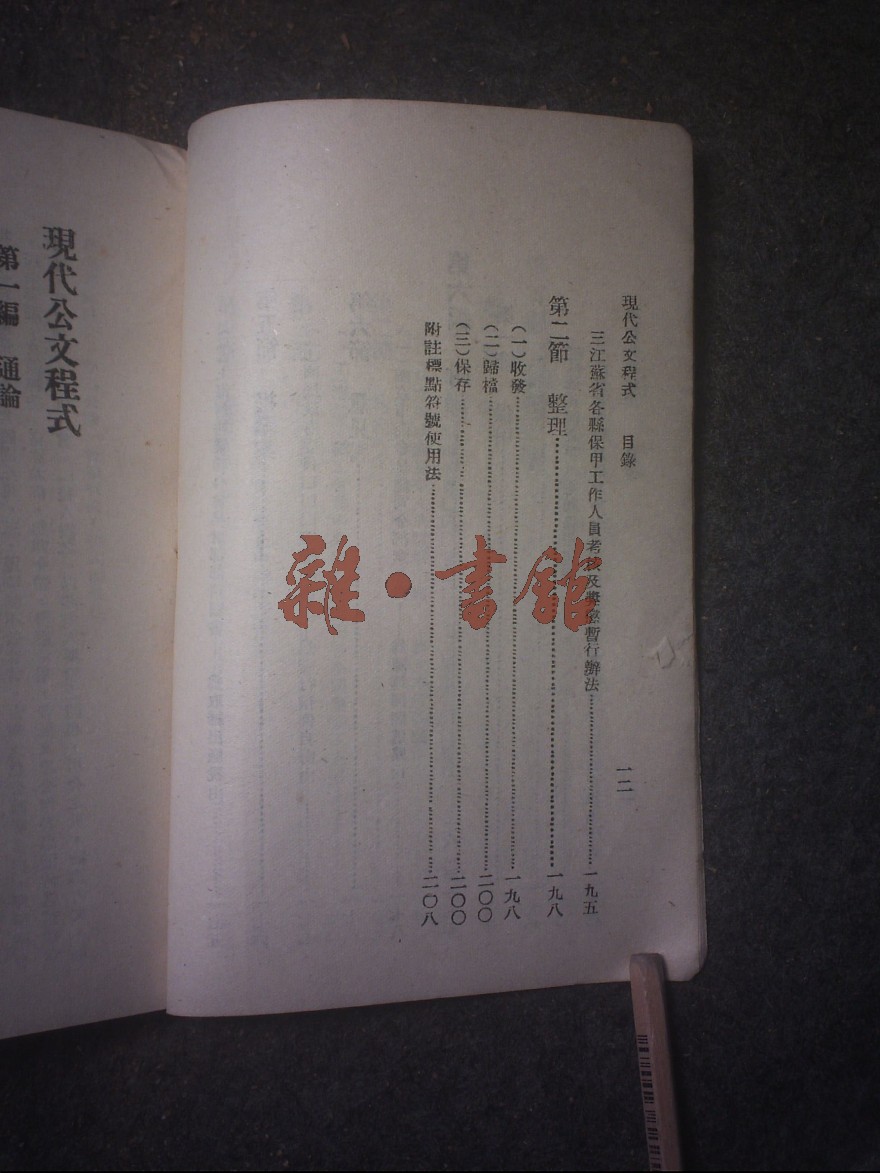 現代公文程式 目錄 一二
三江蘇省各縣保甲工作人員考核及獎懲暫行辦法 一九五
第二節 整理 一九八
(一)收發 一九八
(二)歸檔 二〇〇
(三)保存 二〇〇
附註標點符號使用法 二〇八
現代公文程式
第一編 通論
雜·書館